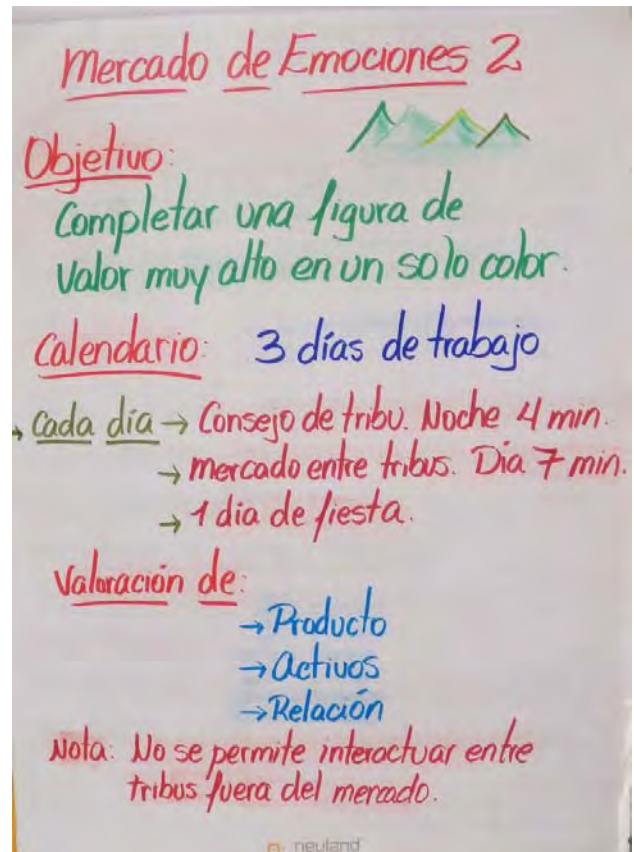 Mercado de Emociones 2
Objetivo:
Completar una figura de
Valor muy alto en un solo color.
Calendario: 3 días de trabajo
→ Cada día → Consejo de tribu. Noche 4 min.
→ mercado entre tribus. Dia 7 min.
→ 1 dia de fiesta.
Valoración de:
→ Producto
→ Activos
→ Relación
Nota: No se permite interactuar entre
tribus fuera del mercado.
neuland